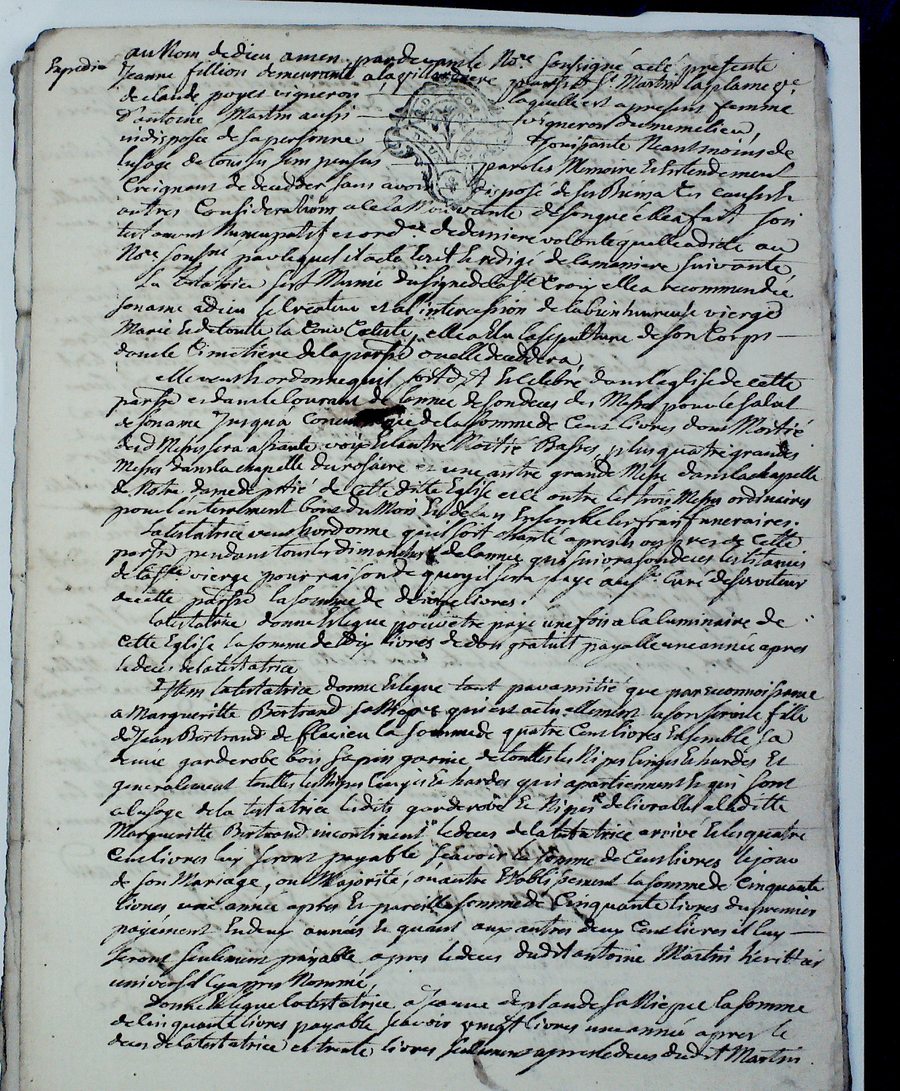 Expédié
au Nom de dieu amen pardevant le No.re Soussigné a eté presente
Jeanne fillion demeurant a la village parsse St Martin laplaine ve.
de claude poyet vigneron laquelle est a present femme
d'antoine Martin aussi vigneron du meme lieu,
indispose de sa personne Jouissante Neantmoins de
lusage de tous ses sens pensées paroles Memoire et Entendement
Creignant de decedder sans avoir disposé de ses Biens a ces causes et
autres Considerations a elle la Mouvante de son gré elle a fait son
testament Nuncupatif et ordce de derniere volonté quelle a dicté au
Nore soussné par lequel il a eté ecrit & redigé de la maniere suivante
La testatrice sest Munie du signe de la Ste Croix elle a recommendé
son ame a dieu le Createur et a l'intercession de la bienheureuse vierge
Marie et de toutte la Cour Celeste, elle a Elu la sepulture de son Corps
dans le Cimetiere de la parsse ou elle deceddera
elle veut & ordonne quil soit dit et celebré dans l'eglise de cette
parsse et dans le Courant de l'année de son deces des Messes pour le salut
de son ame Jusqu'a Concurrence de la somme de Cent livres dont Moitié
desd Messes sera a haute voix et l'autre Moitié Basses, plus quatre grandes
Messes dans la chapelle du rosaire et une autre grande Messe dans la chapelle
de Notre dame de pitié de cette ditte Eglise et ce outre les trois Messes ordinaires
pour l'enterrement bout du Mois et de l'an Ensemble les frais funeraires.
La testatrice veut & ordonne quil soit chanté apres vespres de cette
parsse pendant tous les dimanches de l'année qui suivra son deces les litanies
de la Ste vierge pour raison de quoy il sera payé au sr Curé desserviteur
de cette parsse la somme de douze livres.
la testatrice donne & legue pour etre payé une fois a la luminaire de
cette Eglise la somme de Dix livres de don gratuit payable une année apres
le deces de la testatrice
Item la testatrice donne & legue tant par amitié que par reconnoissance
a Margueritte Bertrand sa Niepce qui est actuellement a son service fille
de Jean Bertrand de flacieu la somme de quatre Cent livres Ensemble
d'une garderobe bois sapin garnie de touttes les Nipes linges & hardes Et
generalement touttes les Nipes linges & hardes qui apartiennent & qui sont
a l'usage de la testatrice ladite garderobe et Nipes delivrables a ladite
Margueritte Bertrand incontinent le deces de la testatrice arrivé et les quatre
Cent livres luy seront payable sçavoir la somme de Cent livres le jour
de son Mariage, ou Majorité, ou autre Etablissement la somme de Cinquante
livres, une année apres et pareille somme de Cinquante livres du premier
payement En deux années & quant aux autres deux Cent livres il luy
seront seulement payable apres le deces dudit antoine Martin herittier
universel cy apres Nommé,
Donne & legue la testatrice a Jeanne sa Niepce la somme
de Cinquante livres payable sçavoir vingt livres une année apres le
deces de la testatrice et trente livres seulement apres le deces dudit Martin